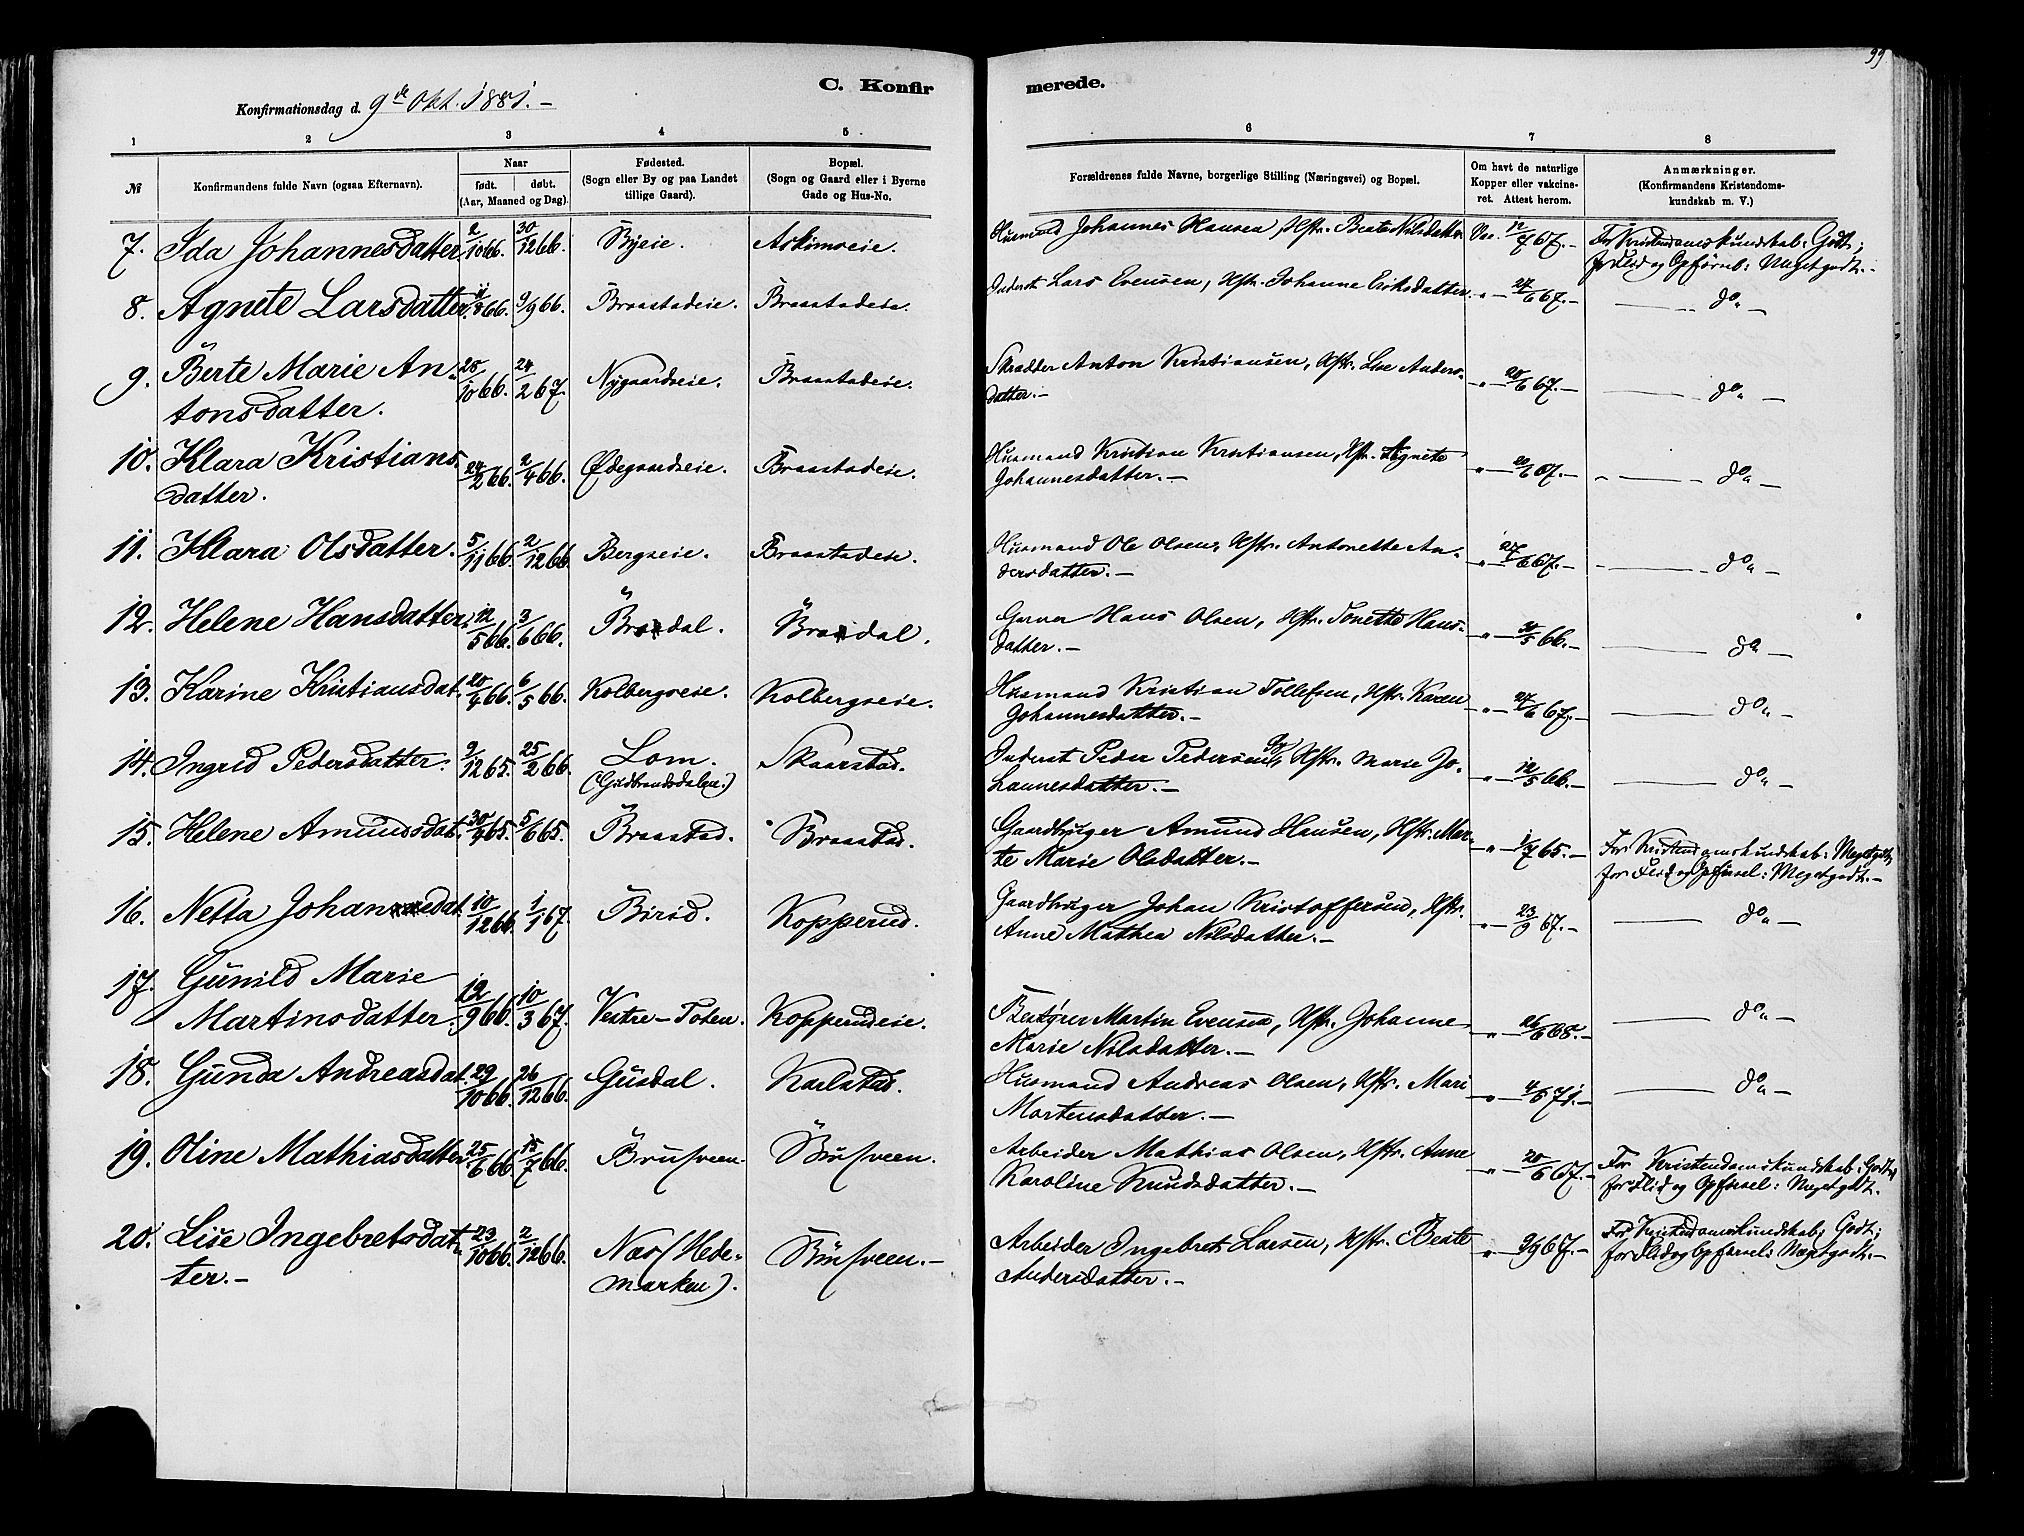 99
C. Konfirmerede.
Konfirmationsdag d. 9de Okt. 1881.-
1 2 3 4 5 6 7 8
№ Konfirmandens fulde Navn (ogsaa Efternavn). Naar født. døbt. (Aar, Maaned og Dag). Fødested. (Sogn eller By og paa Landet tillige Gaard). Bopæl. (Sogn og Gaard eller i Byerne Gade og Hus-No.
Forældrenes fulde Navne, borgerlige Stilling (Næringsvei) og Bopæl. Om havt de naturlige Kopper eller vakcineret. Attest herom. Anmærkninger. (Konfirmandens Kristendomskundskab m. V.)
7. Ida Johannesdatter 2/10 66. 30/12 66. Byeie. Askimseie. Husmand Johannes Hansen, Hstr. Beate Nilsdatter. Vac. 12/7 67.- For Kristendomskundskab: Godt;
for Flid og Opførsel: Meget godt.-
8. Agnete Larsdatter. 11/8 66. 9/9 66. Braastadeie. Braastadeie. Inderst Lars Evensen, Hstr. Johanne Eriksdatter. -"- 27/6 67.- do
9. Berte Marie An- 28/10 66. 24/2 67. Nygaardseie. Braastadeie. Skrædder Anton Kristiansen, Hstr. Lise Anders- -"- 20/6 67.- do
tonsdatter. datter.-
10. Klara Kristians- 24/2 66. 2/4 66. Ødegaardseie. Braastadeie. Husmand Kristian Kristiansen, Hstr. Agnete -"- 20/6 67.- do
datter. Johannesdatter.-
11. Klara Olsdatter. 5/11 66. 2/12 66. Bergseie. Braastadeie. Husmand Ole Olsen, Hstr. Antonette An- -"- 27/6 67.- do
dersdatter.-
12. Helene Hansdatter. 12/5 66. 3/6 66. Bradal. Bradal. Garver Hans Olsen, Hstr. Tonette Hans- -"- 31/5 66.- do
datter.-
13. Karine Kristiansdat. 20/4 66. 6/5 66. Kolbergseie. Kolbergseie. Husmand Kristian Tollefsen, Hstr. Karen -"- 27/6 67.- do
Johannesdatter.-
14. Ingrid Pedersdatter. 9/12 65. 25/2 66. Lom. Skaarstad. Inderst Peder Pedersen, Hstr. Marie Jo- -"- 12/5 66.- do
(Gudbrandsdalen.) hannesdatter.-
15. Helene Amundsdat. 30/4 65. 5/6 65. Braastad. Braastad. Gaardbruger Amund Hansen, Hstr. Mar- -"- 1/7 65.- For Kristendomskundskab: Megetgodt,
te Marie Olsdatter.- for Flid og Opførsel: Megetgodt.-
16. Netta Johansdat. 10/12 66. 1/1 67. Birid. Kopperud. Gaardbruger Johan Kristoffersen, Hstr. -"- 23/9 67.- do
Anne Mathea Nilsdatter.-
17. Gunild Marie
Martinsdatter. 12/9 66. 10/3 67. Vestre-Toten. Kopperudeie. Martin Evensen, Hstr. Johanne -"- 26/6 68.- do
Marie Nilsdatter.-
18. Gunda Andreasdat. 29/10 66. 26/12 66. Gusdal. Karlstad. Husmand Andreas Olsen, Hstr. Mari -"- 4/6 71.- do
Mortensdatter.-
19. Oline Mathiasdatter 25/6 66. 15/7 66. Brusveen. Brusveen. Arbeider Mathias Olsen, Hstr. Anne -"- 20/6 67.- For Kristendomskundskab: Godt,
Karoline Knudsdatter.- for Flid og Opførsel: Meget godt.
20. Lise Ingebretsdat- 23/10 66. 2/12 66. Næs (Hede- Brusveen.- Arbeider Ingebret Larsen, Hstr. Beate " 9/9 67.- For Kristendomskundskab: Godt;
ter.- marken). Andersdatter.- for Flid og Opførsel: Megetgodt.-